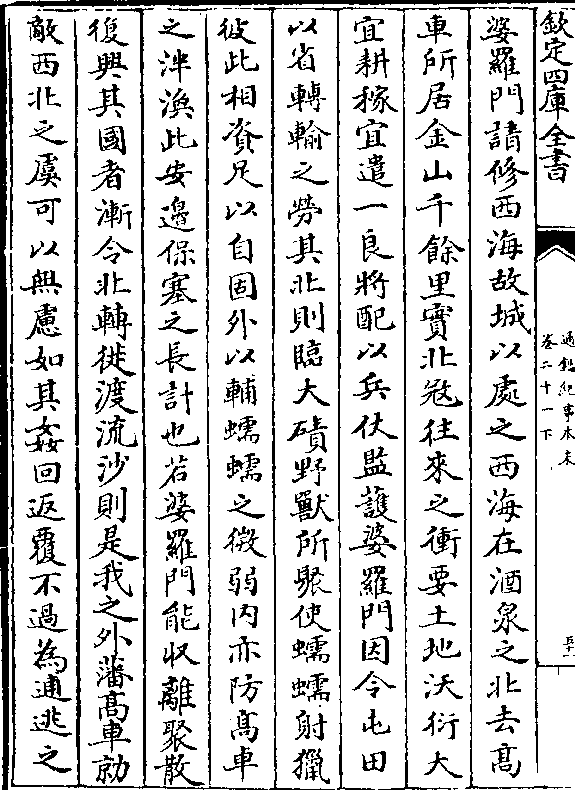 欽定四庫全書
通鑑紀事本末
卷二十一下
五十一
婆羅門請修西海故城以處之西海在酒泉之北去髙
車所居金山千餘里實北冦往來之衝要土地沃衍大
宜耕稼宜遣一良將配以兵仗監䕶婆羅門因令屯田
以省轉輸之勞其北則臨大磧野獸所聚使蠕蠕射獵
彼此相資足以自固外以輔蠕蠕之微弱内亦防髙車
之泮渙此安邊保塞之長計也若婆羅門能收離聚散
復興其國者漸令北轉徙渡流沙則是我之外藩髙車勍
敵西北之虞可以無慮如其姦回返覆不過為逋逃之